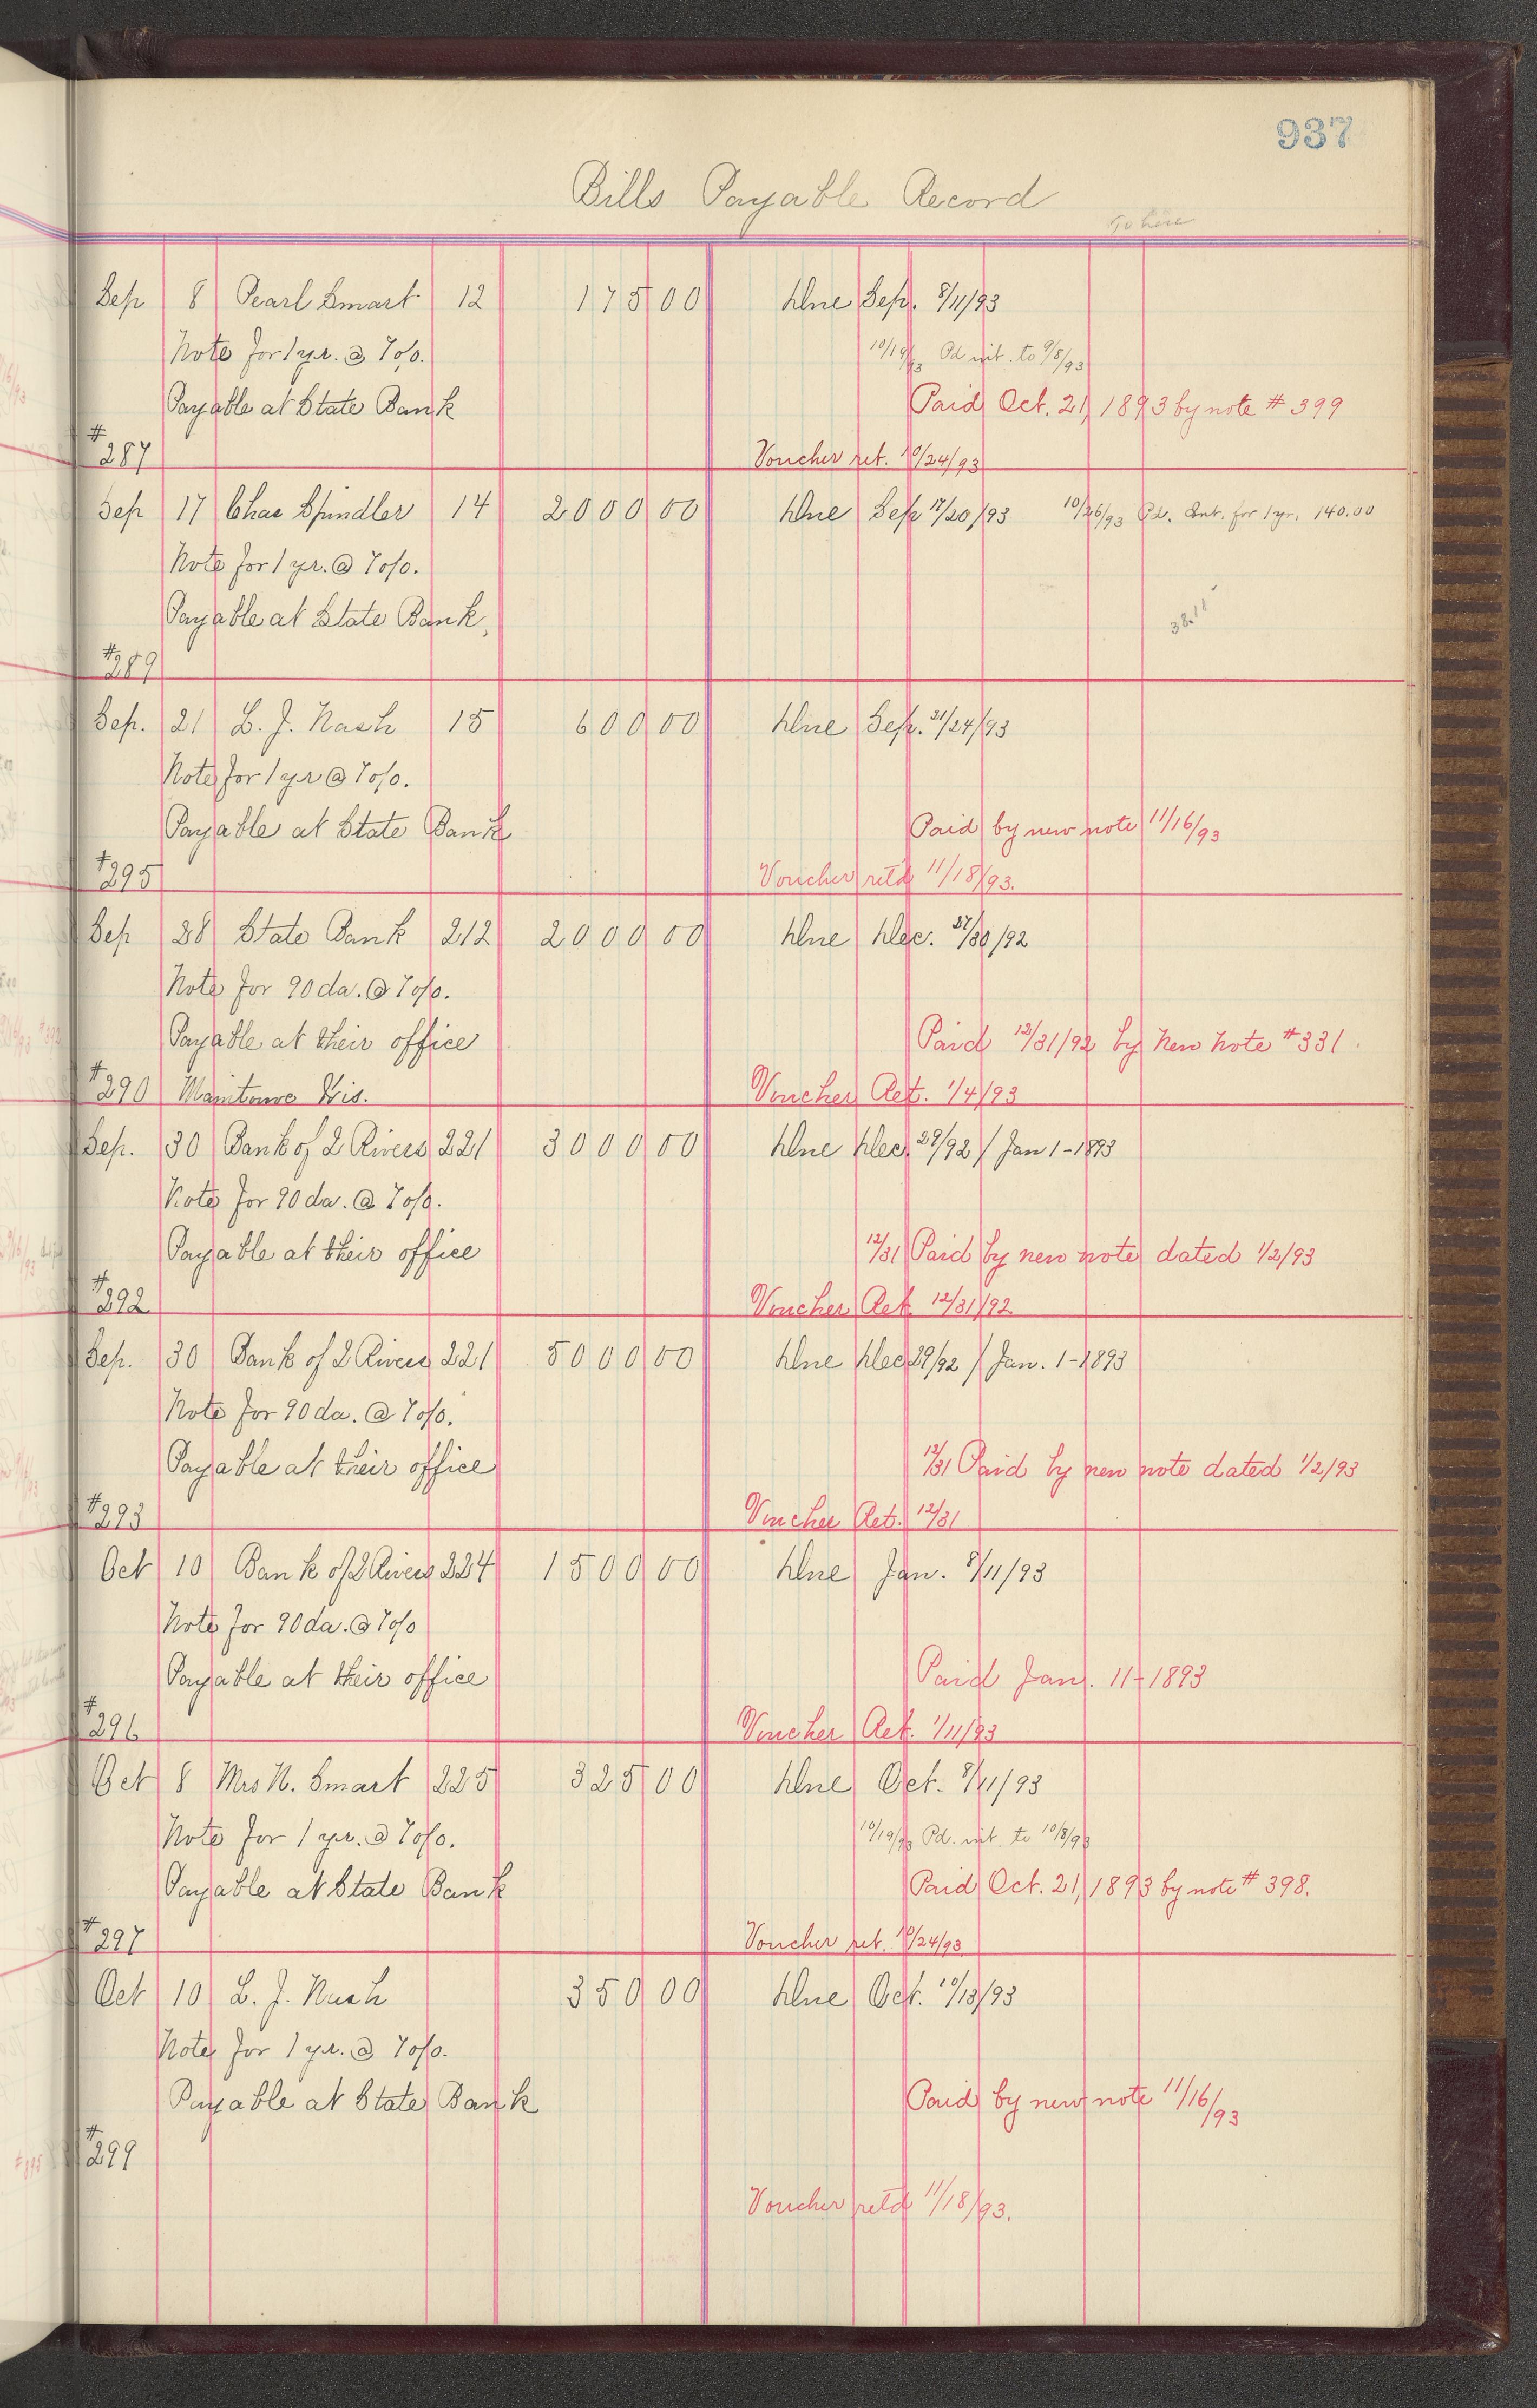 937
Bills Payable Record
Go here
Sep 8 Pearl Smart 12 175 00 Due Sep. 8/11/93
Note for 1 yr. @ 7o/o. 10/19/93 Pd int. to 9/8/93
Payable at State Bank Paid Oct. 21, 1893 by note # 399
#287 Voucher ret. 10/24/93
Sep 17 Chas Spindler 14 2000 00 Due Sep 17/20/93 10/26/93 Pd. Int. for 1 yr. 140.00
Note for 1 yr. @ 7o/o.
Payable at State Bank, 38.11
#289
Sep. 21 L. J. Nash 15 600 00 Due Sep. 21/24/93
Note for 1 yr @ 7o/o.
Payable at State Bank Paid by new note 11/16/93
#295 Voucher retd 11/18/93.
Sep 28 State Bank 212 2000 00 Due Dec. 27/30/92
Note for 90 da. @ 7o/o.
Payable at their office Paid 12/31/92 by New Note #331.
#290 Manitowoc Wis. Voucher Ret. 1/4/93
Sep. 30 Bank of 2 Rivers 221 3000 00 Due Dec 29/92 / Jan 1-1893
Note for 90 da. @ 7o/o.
Payable at their office 12/31 Paid by new note dated 1/2/93
#292 Voucher Ret. 12/31/92
Sep. 30 Bank of 2 Rivers 221 5000 00 Due Dec 29/92 / Jan. 1-1893
Note for 90 da. @ 7o/o.
Payable at their office 12/31 Paid by new note dated 1/2/93
#293 Voucher Ret. 12/31
Oct 10 Bank of 2 Rivers 224 1500 00 Due Jan. 8/11/93
Note for 90 da. @ 7o/o
Payable at their office Paid Jan. 11-1893
#296 Voucher Ret. 1/11/93
Oct 8 Mrs N. Smart 225 325 00 Due Oct. 8/11/93
Note for 1 yr. @ 7o/o. 10/19/93 Pd. int. to 10/8/93
Payable at State Bank Paid Oct. 21, 1893 by note # 398.
#297 Voucher ret. 10/24/93
Oct 10 L. J. Nash 350 00 Due Oct. 10/13/93
Note for 1 yr. @ 7o/o.
Payable at State Bank Paid by new note 11/16/93
#299
Voucher retd 11/18/93.